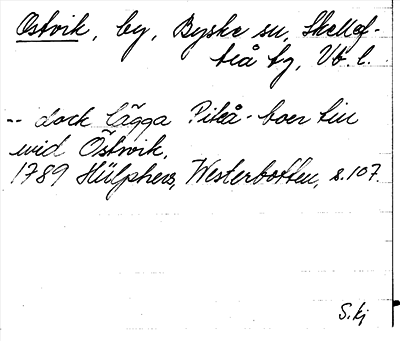 Ostvik, by, Byske sn, Skellef-
teå tg, Vb. l.
-- dock lägga Piteå-boer till
wid Östwik.
1789 Hülphers, Westerbotten, s. 107.
S. Kj